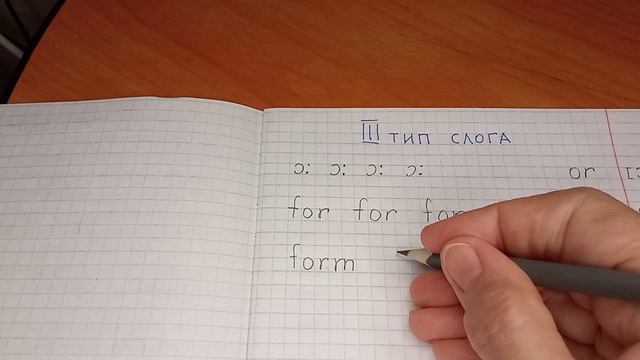 III ТИП СЛОГА
ɔ: ɔ: ɔ: ɔ: or
for for for
form